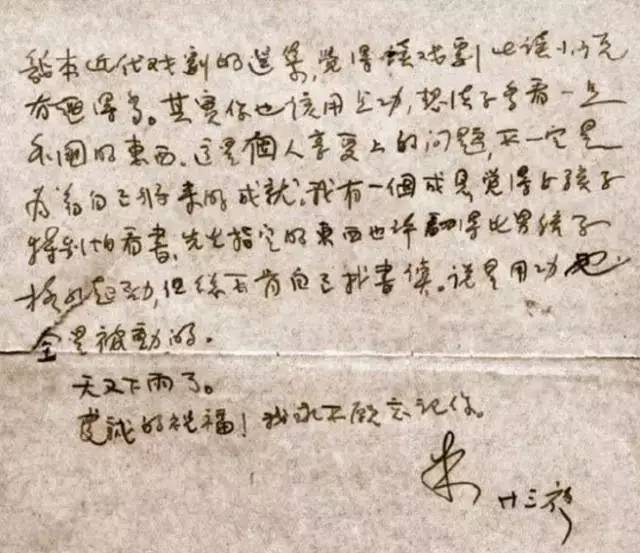 龍本近代戏劇的選集,覺得读戏劇比读小说
有趣得多。其實你也该用点功,想法子多看一点
外國的東西。这是個人享受上的问题,不一定是
为着自己将来的成就。我有一個成見,覺得女孩子
特别怕看書,先生指定的東西也许翻得比男孩子
格外起勁,但綝不肯自己找書讀。说是用功也
全是被動的。
天又下雨了。
虔诚的祝福!我永不願忘记你。
朱 廿三夜